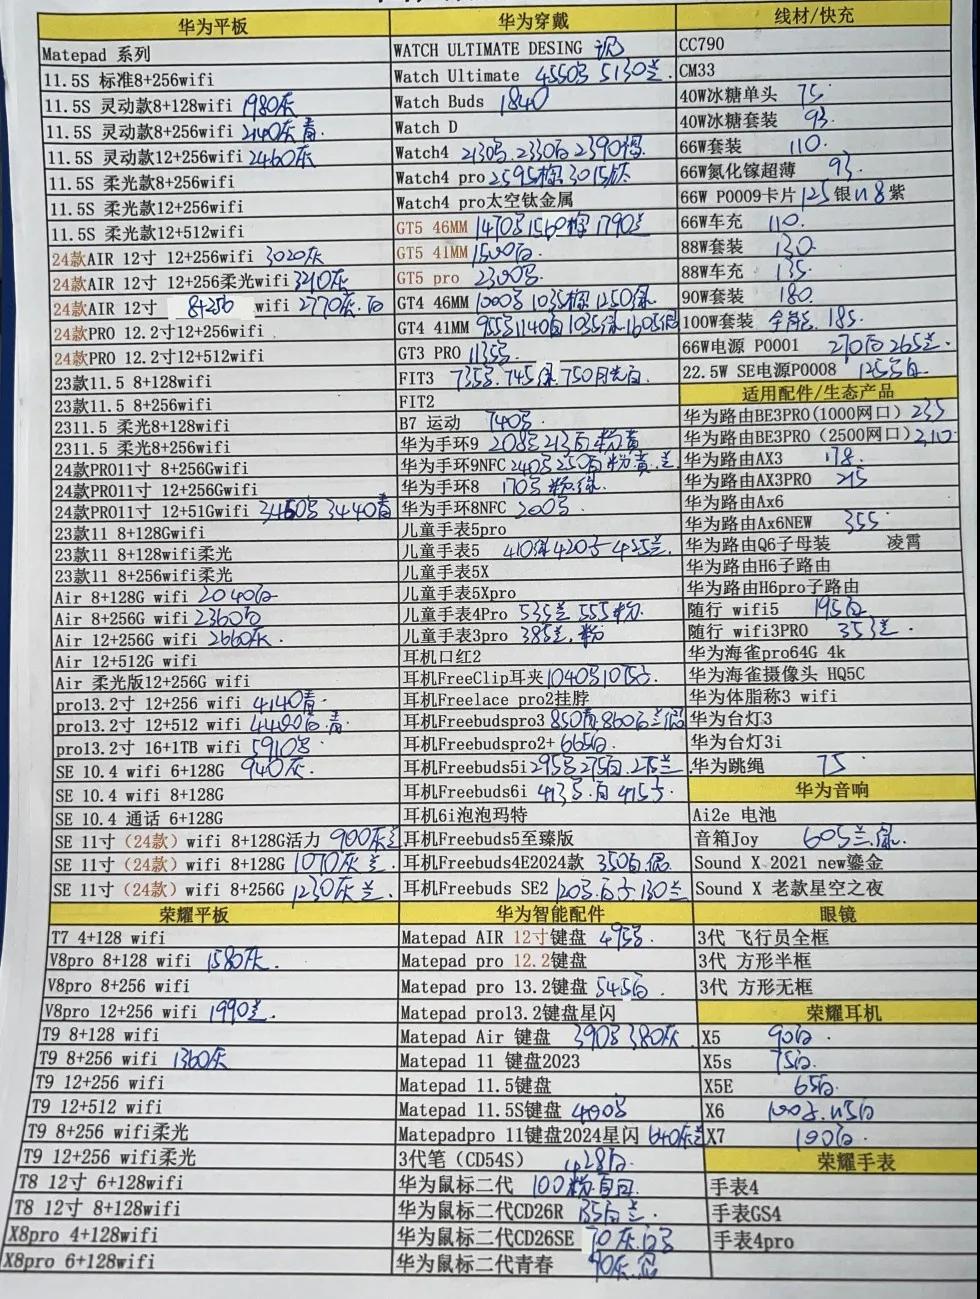 华为平板
Matepad 系列
11.5S 标准8+256wifi
11.5S 灵动款8+128wifi 1980灰
11.5S 灵动款8+256wifi 2140灰青
11.5S 灵动款12+256wifi 2460灰
11.5S 柔光款8+256wifi
11.5S 柔光款12+256wifi
11.5S 柔光款12+512wifi
24款AIR 12寸 12+256wifi 3020灰
24款AIR 12寸 12+256柔光wifi 3210灰
24款AIR 12寸 8+256 wifi 2770灰.白
24款PRO 12.2寸12+256wifi
24款PRO 12.2寸12+512wifi
23款11.5 8+128wifi
23款11.5 8+256wifi
2311.5 柔光8+128wifi
2311.5 柔光8+256wifi
24款PRO11寸 8+256Gwifi
24款PRO11寸 12+256Gwifi
24款PRO11寸 12+51Gwifi 3440青
23款11 8+128Gwifi
23款11 8+128wifi柔光
23款11 8+256wifi柔光
Air 8+128G wifi 2040白
Air 8+256G wifi 2360白
Air 12+256G wifi 2660灰.
Air 12+512G wifi
Air 柔光版12+256G wifi
pro13.2寸 12+256 wifi 4140青
pro13.2寸 12+512 wifi 青.
pro13.2寸 16+1TB wifi 5910
SE 10.4 wifi 6+128G 940灰.
SE 10.4 wifi 8+128G
SE 10.4 通话 6+128G
SE 11寸（24款）wifi 8+128G活力 900灰兰
SE 11寸（24款）wifi 8+128G 1070灰兰.
SE 11寸（24款）wifi 8+256G 1230灰兰.
荣耀平板
T7 4+128 wifi
V8pro 8+128 wifi 1580灰.
V8pro 8+256 wifi
V8pro 12+256 wifi 1990兰.
T9 8+128 wifi
T9 8+256 wifi 1360灰
T9 12+256 wifi
T9 12+512 wifi
T9 8+256 wifi柔光
T9 12+256 wifi柔光
T8 12寸 6+128wifi
T8 12寸 8+128wifi
X8pro 4+128wifi
X8pro 6+128wifi
华为穿戴
WATCH ULTIMATE DESING
Watch Ultimate 5130兰.
Watch Buds 1840
Watch D
Watch4 2130 2330白 2390棕.
Watch4 pro 2595棕 3015钛
Watch4 pro太空钛金属
GT5 46MM 1470 1560棕 1790兰
GT5 41MM 1500白.
GT5 pro 2300
GT4 46MM 1000 1035棕 1250绿.
GT4 41MM 955 1140白 1035绿
GT3 PRO 1135
FIT3 735 745绿 750月光白.
FIT2
B7 运动 740
华为手环9 208 213白粉黄
华为手环9NFC 240 250白粉黄.兰
华为手环8 170 粉绿.
华为手环8NFC 200
儿童手表5pro
儿童手表5 410绿 420 435兰.
儿童手表5X
儿童手表5Xpro
儿童手表4Pro 535兰 555粉.
儿童手表3pro 385兰.粉
耳机口红2
耳机FreeClip耳夹 1040
耳机Freelace pro2挂脖
耳机Freebudspro3 850青
耳机Freebudspro2+ 665白.
耳机Freebuds5i 295 275白.
耳机Freebuds6i 白 415
耳机6i泡泡玛特
耳机Freebuds5至臻版
耳机Freebuds4E2024款 350白.
耳机Freebuds SE2 120 白 130兰
华为智能配件
Matepad AIR 12寸键盘 495
Matepad pro 12.2键盘
Matepad pro 13.2键盘 545白.
Matepad pro13.2键盘星闪
Matepad Air 键盘 390 380灰.
Matepad 11 键盘2023
Matepad 11.5键盘
Matepad 11.5S键盘 400
Matepadpro 11键盘2024星闪 640灰兰
3代笔（CD54S） 428白.
华为鼠标二代 100粉白
华为鼠标二代CD26R 135白兰.
华为鼠标二代CD26SE 70灰.白
华为鼠标二代青春 90灰.
线材/快充
CC790
CM33
40W冰糖单头 75.
40W冰糖套装 93.
66W套装 110.
66W氮化镓超薄 93.
66W P0009卡片 125银118紫
66W车充 110.
88W套装 130.
88W车充 135.
90W套装 180.
100W套装 185.
66W电源 P0001 270白265兰.
22.5W SE电源P0008
适用配件/生态产品
华为路由BE3PRO(1000网口) 235
华为路由BE3PRO（2500网口） 210
华为路由AX3 178.
华为路由AX3PRO 215
华为路由Ax6
华为路由Ax6NEW 355
华为路由Q6子母装 凌霄
华为路由H6子路由
华为路由H6pro子路由
随行 wifi5 195白
随行 wifi3PRO 353兰.
华为海雀pro64G 4k
华为海雀摄像头 HQ5C
华为体脂称3 wifi
华为台灯3
华为台灯3i
华为跳绳 75
华为音响
Ai2e 电池
音箱Joy 605兰.绿.
Sound X 2021 new鎏金
Sound X 老款星空之夜
眼镜
3代 飞行员全框
3代 方形半框
3代 方形无框
荣耀耳机
X5 90白.
X5s 75白.
X5E 65白.
X6 115白
X7 190白.
荣耀手表
手表4
手表GS4
手表4pro